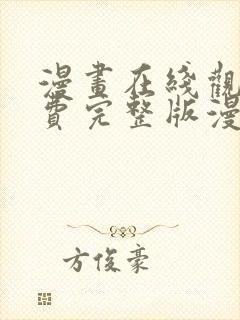 漫畫在綫觀
費完整版漫
方俊豪